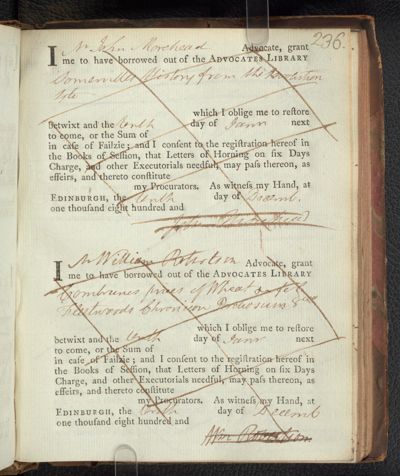 236.
I Mr John Morehead Advocate, grant
me to have borrowed out of the ADVOCATES LIBRARY
Somervilles History from the Revolution
which I oblige me to reſtore
betwixt and the tenth day of Janry next
to come, or the Sum of
in caſe of Failzie; and I conſent to the regiſtration hereof in
the Books of Seſſion, that Letters of Horning on ſix Days
Charge, and other Executorials needful, may paſs thereon, as
effeirs, and thereto conſtitute
my Procurators. As witneſs my Hand, at
EDINBURGH, the tenth day of Decemb.
one thouſand eight hundred and
John Morehead
I Mr William Robertson Advocate, grant
me to have borrowed out of the ADVOCATES LIBRARY
prices of Wheat
Fleetwoods Chronicon Preciosum
which I oblige me to reſtore
betwixt and the tenth day of Janry next
to come, or the Sum of
in caſe of Failzie; and I conſent to the regiſtration hereof in
the Books of Seſſion, that Letters of Horning on ſix Days
Charge, and other Executorials needful, may paſs thereon, as
effeirs, and thereto conſtitute
my Procurators. As witneſs my Hand, at
EDINBURGH, the tenth day of Decemb
one thouſand eight hundred and
Wm Robertson